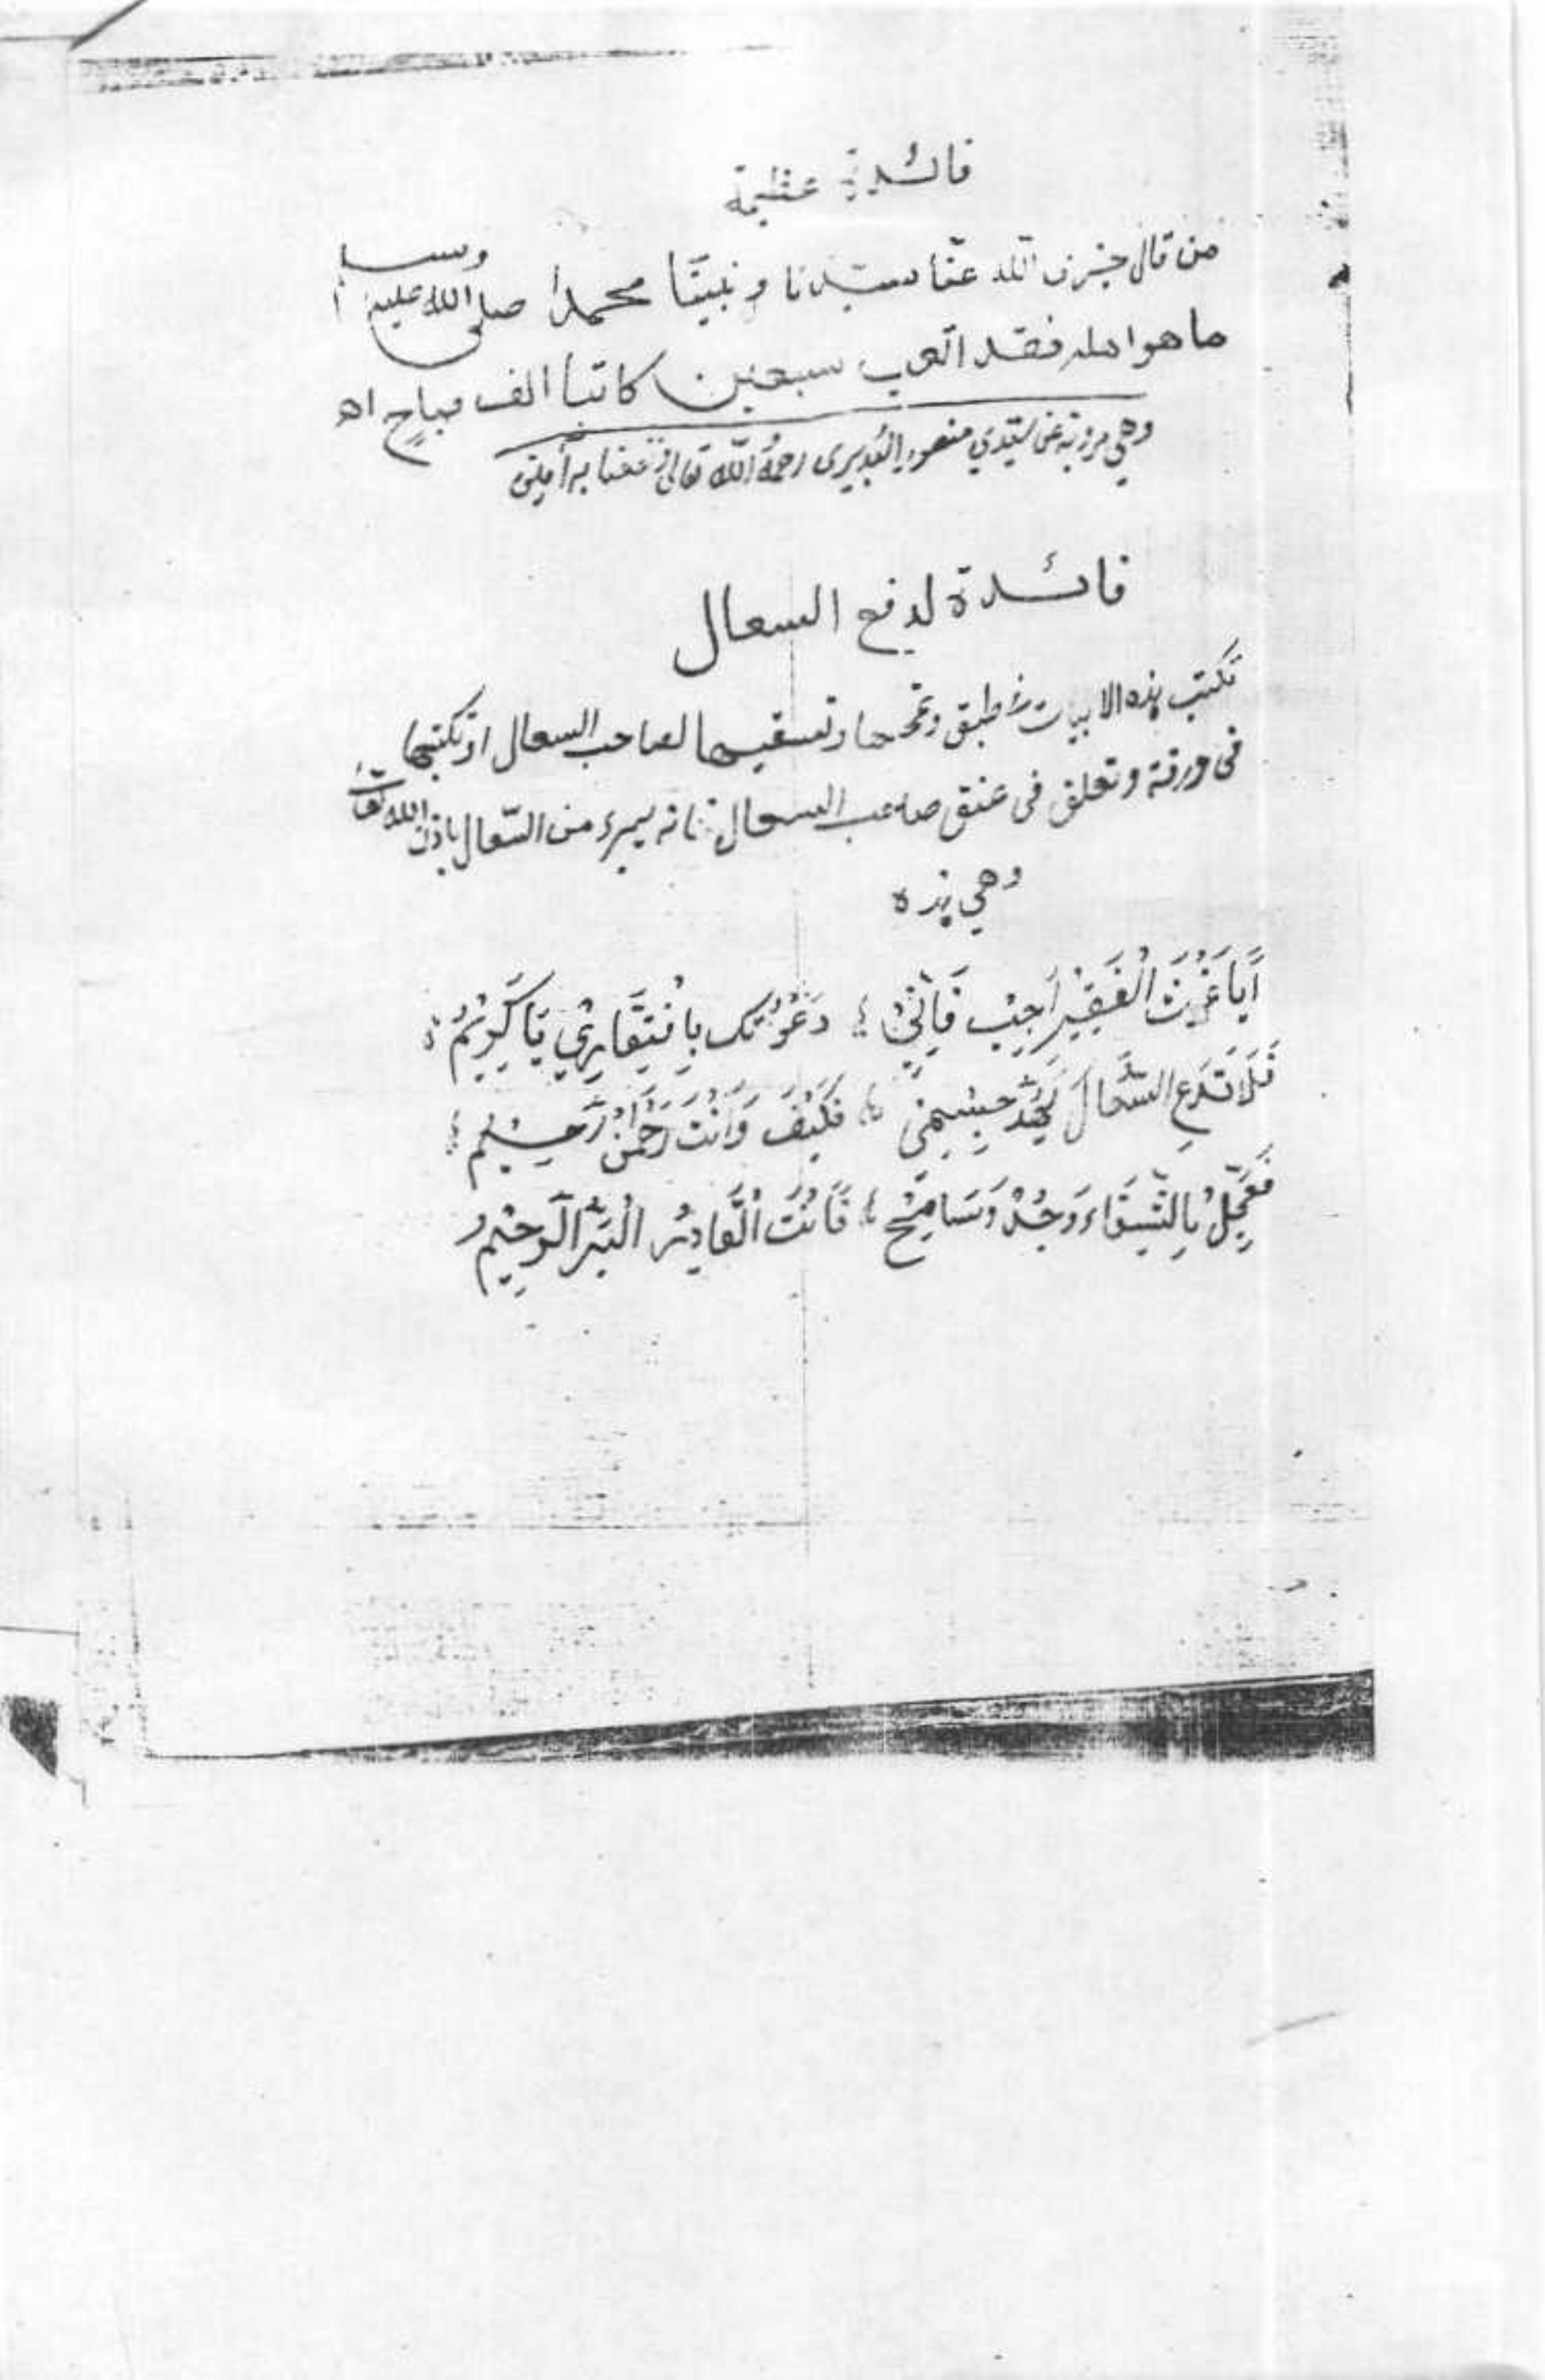 فائدة عظيمة
من قال جزى الله عنا سيدنا ونبينا محمدا صلى الله عليه وسلم
ما هو اهله فقد اتعب سبعين كاتبا الف صباح اه
وهي مروية عن سيدي منصور رحمه الله تعالى نفعنا به آمين
فائدة لدفع السعال
تكتب هذه الابيات في طبق وتمحها وتسقيها لصاحب السعال او تكتبها
في ورقة وتعلق في عنق صاحب السعال فانه يبرء من السّعال باذن الله تعالى
وهي هذه
أَيَا غَوْثَ الْفَقِيْرِ أَجِبْ فَإِنِّيْ ؛ دَعَوْتُكَ بِافْتِقَارِيْ يَا كَرِيْمُ ؛
فَلَا تَدَعِ السُّعَالَ يَهُدُّ جِسْمِيْ ؛ فَكَيْفَ وَأَنْتَ رَحْمٰنٌ رَحِيْمُ ؛
فَعَجِّلْ بِالشِّفَاءِ وَجُدْ وَسَامِحْ ؛ فَأَنْتَ الْقَادِرُ الْبَرُّ الرَّحِيْمُ